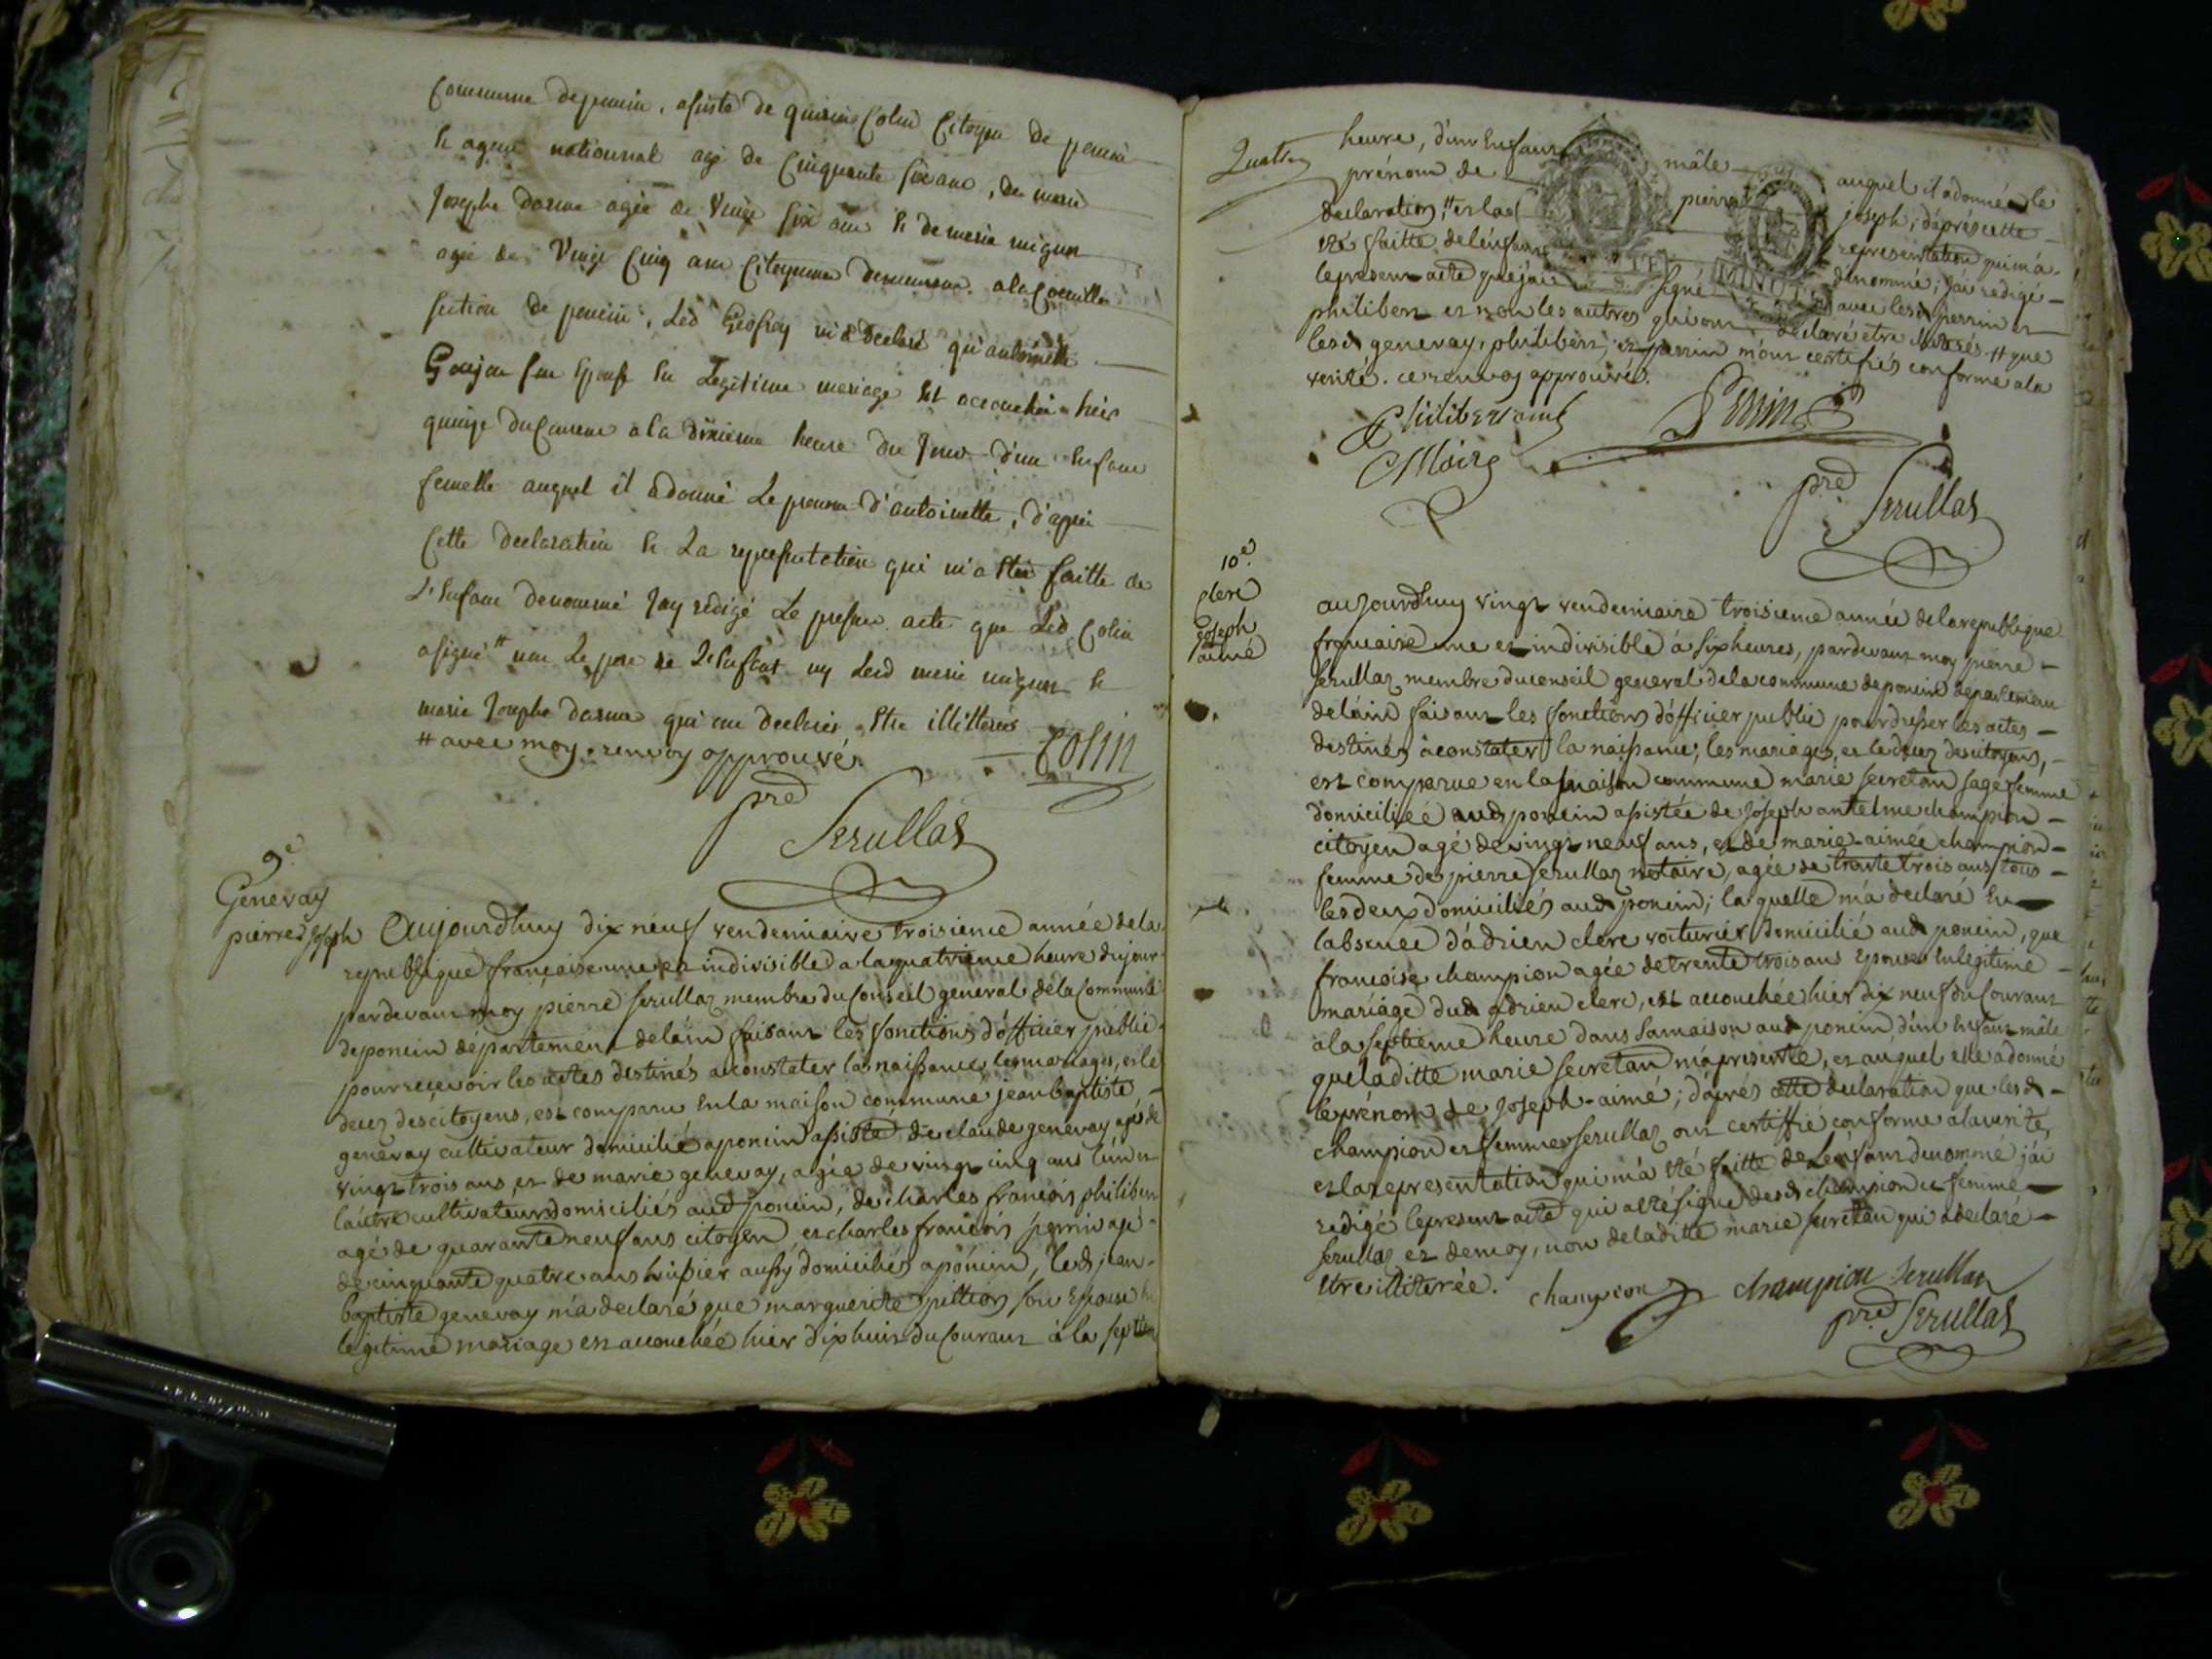 Commune de poncin, assisté de quirin Colin Citoyen de poncin
& agent nationnal agé de Cinquante six ans, de marie
Josephe darme agée de Vingt six ans & de marie migon
agée de Vingt Cinq ans Citoyennes demeurant a la
section de poncin, Led Geofray m'a declaré qu'antoinette
Goujon son Epouse En Legitime mariage Est accouchée hier
quinze du Courant a la dixieme heure du Jour d'un Enfant
femelle auquel il a donné Le prenom d'antoinette, d'après
Cette declaration & La representation qui m'a Eté faitte de
L'Enfant denommé Jay redigé Le present acte que Led Colin
a signé # non Le pere de L'Enfant ny Lesd marie migon &
marie Josephe darme qui ont declarés Etre illitterés
# avec moy. renvoy approuvé.
Colin
pre Serullas
9e
Genevay
pierre Joseph
Aujourdhuy dix neuf vendemiaire troisieme année de la
republique française une et indivisible a la quatrieme heure du jour
pardevant moy pierre Serullaz membre du Conseil general de la Commune
de poncin département de l'ain faisant les fonctions d'officier public
pour recevoir les actes destinés a constater la naissance, les mariages, et le
decez des citoyens, est comparu En la maison commune jean baptiste
genevay cultivateur domicilié a poncin assisté de claude genevay agé de
vingt trois ans et de marie genevay, agée de vingt cinq ans l'un et
l'autre cultivateurs domiciliés aud poncin, de charles françois philibert
agé de quarante neuf ans citoyen et charles françois perrin agé
de cinquante quatre ans huissier aussy domiciliés a poncin, led jean
baptiste genevay m'a declaré que marguerite pittion son Epouse En
legitime mariage est accouchée hier dix huit du Courant à la septieme
heure, d'un Enfant mâle auquel il a donné le
prénom de pierre joseph; d'après cette
declaration, # et la representation qui m'a
eté faitte de l'enfant dénommé; j'ai redigé
le present acte que j'ai signé avec lesd perrin et
philibert et non les autres qui ont declaré etre illiterés. # que
lesd genevay, philibert, et perrin m'ont certifiés conforme a la
verité. ce renvoy approuvé.
Philibert
Perrin
Moirs
pre Serullas
10e.
clerc
joseph
aimé
aujourdhuy vingt vendemiaire troisieme année de la republique
françaire une et indivisible à six heures, pardevant moy pierre
Serullaz membre du conseil general de la commune de poncin département
de lain faisant les fonctions d'officier public pour dresser les actes
destinés a constater la naissance, les mariages, et le decez des citoyens,
est comparue en la maison commune marie secretan sage femme
domiciliée aud poncin assistée de Joseph antelme champion
citoyen agé de vingt neuf ans, et de marie-aimée champion
femme de pierre Serullaz notaire, agée de trente trois ans tous
les deux domiciliés aud poncin; la quelle m'a declaré En
l'absence d'adrien clerc voiturier domicilié aud poncin, que
francoise champion agée de trente trois ans Epouse En legitime
mariage dud adrien clerc, est accouchée hier dix neuf du Courant
a la septieme heure dans sa maison aud poncin d'un Enfant mâle
que laditte marie secretan m'a presenté, et auquel elle a donné
le prénom de Joseph-aimé; d'après cette declaration que lesd
champion et femme Serullaz ont certiffié conforme a la verité,
et la representation qui m'a eté faitte de l'enfant denommé j'ai
redigé le present acte qui a eté signé desd champion et femme
Serullaz et de moy, non de laditte marie secretan qui a declaré
etre illiterée.
champion
champion Serullaz
pre Serullas